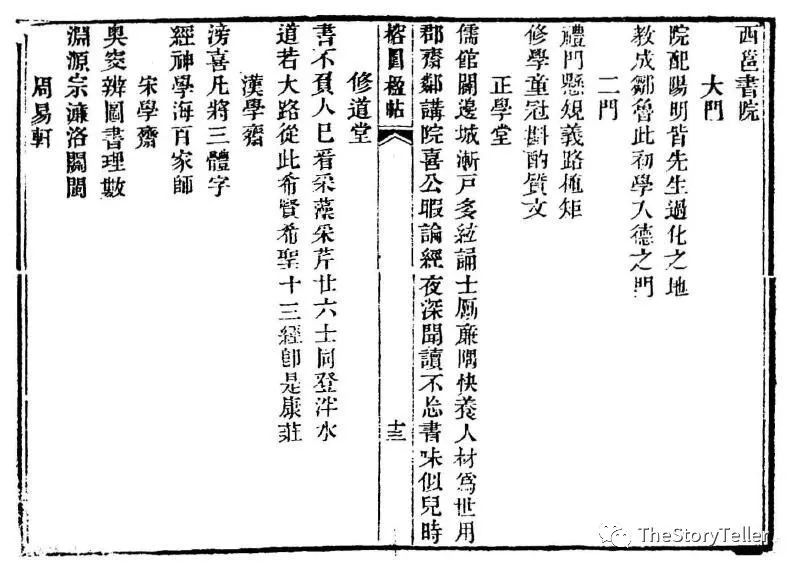 西邕書院
大門
院配陽明皆先生過化之地
教成鄒魯此初學入德之門
二門
禮門懸規義路植矩
修學童冠斟酌質文
正學堂
儒館闢邊城漸戸多絃誦士勵廉隅快養人材爲世用
郡齋鄰講院喜公暇論經夜深聞讀不忘書味似兒時
榕園楹帖
十三
修道堂
書不負人已看采藻采芹廿六士同登泮水
道若大路從此希賢希聖十三經卽是康莊
漢學齋
滂喜凡將三體字
經神學海百家師
宋學齋
奧窔辨圖書理數
淵源宗濂洛關閩
周易軒
TheStoryTeller